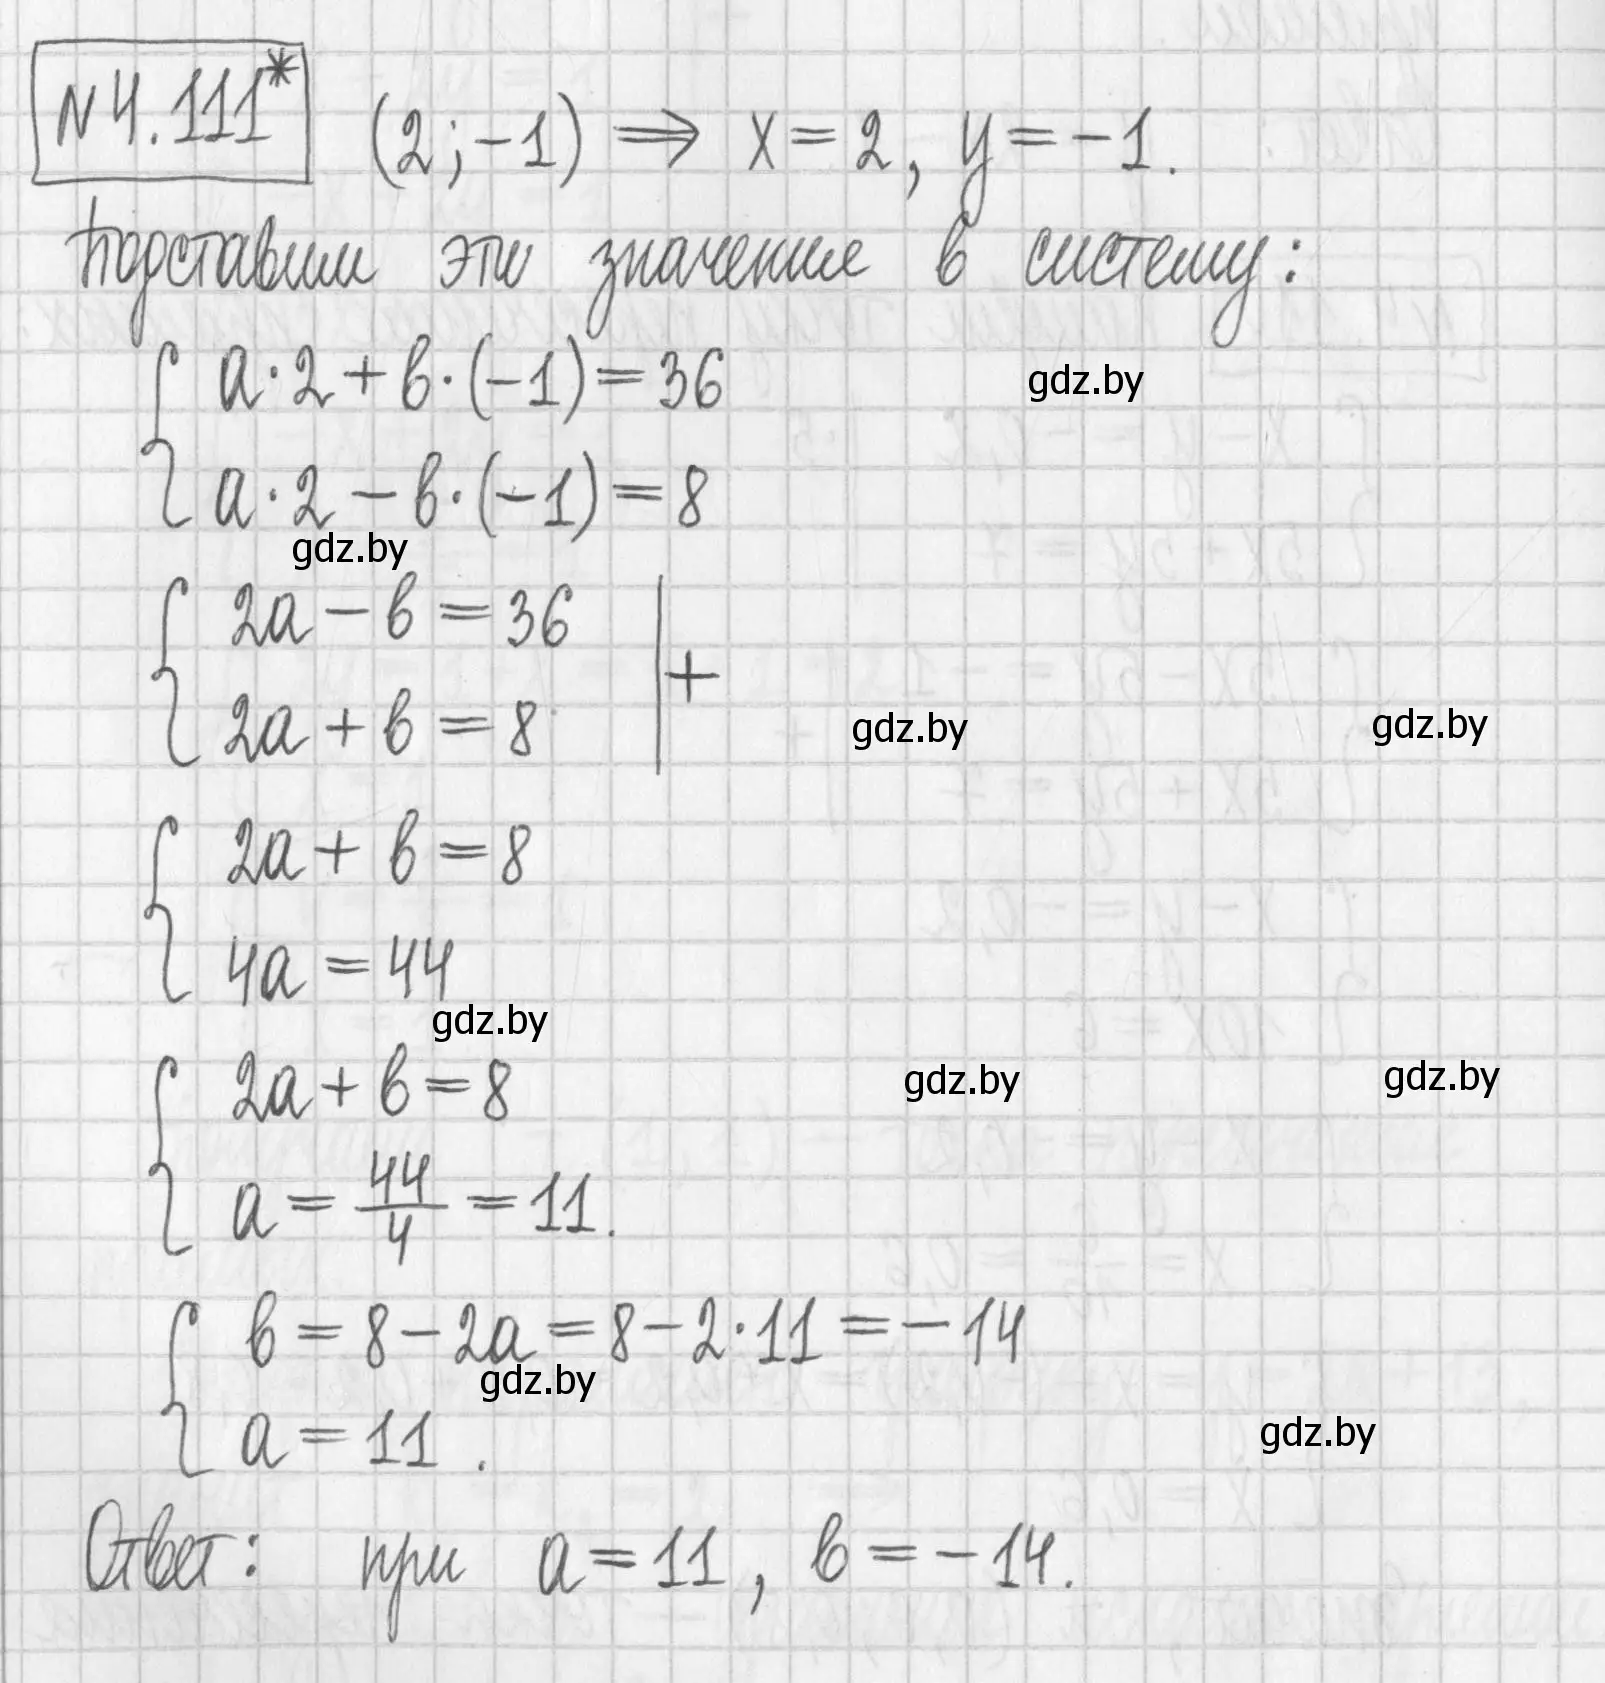 N 4.111* (2; -1) ⟹ x = 2, y = -1.
Подставим эти значение в систему:
a · 2 + в · (-1) = 36
gdz.by
a · 2 - в · (-1) = 8
gdz.by
2a - в = 36
+
2a + в = 8
gdz.by gdz.by
2a + в = 8
4a = 44
gdz.by
2a + в = 8
gdz.by gdz.by
a = 44/4 = 11.
в = 8 - 2a = 8 - 2 · 11 = -14
gdz.by
a = 11.
gdz.by
Ответ: при a = 11, в = -14.